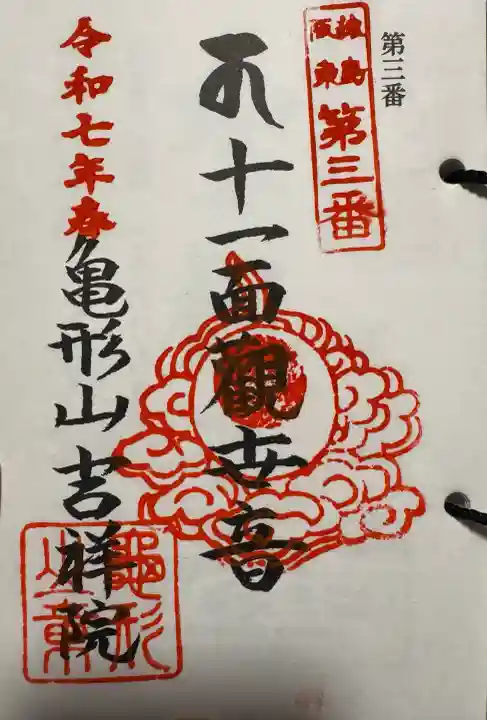 第三番
猿島
阪東
第三番
十一面觀世音
令和七年春
亀形山吉祥院
龜形